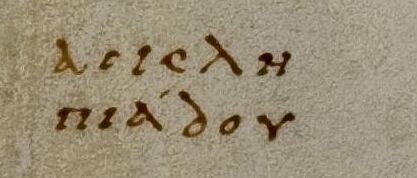 αϲκλη
πιάδου